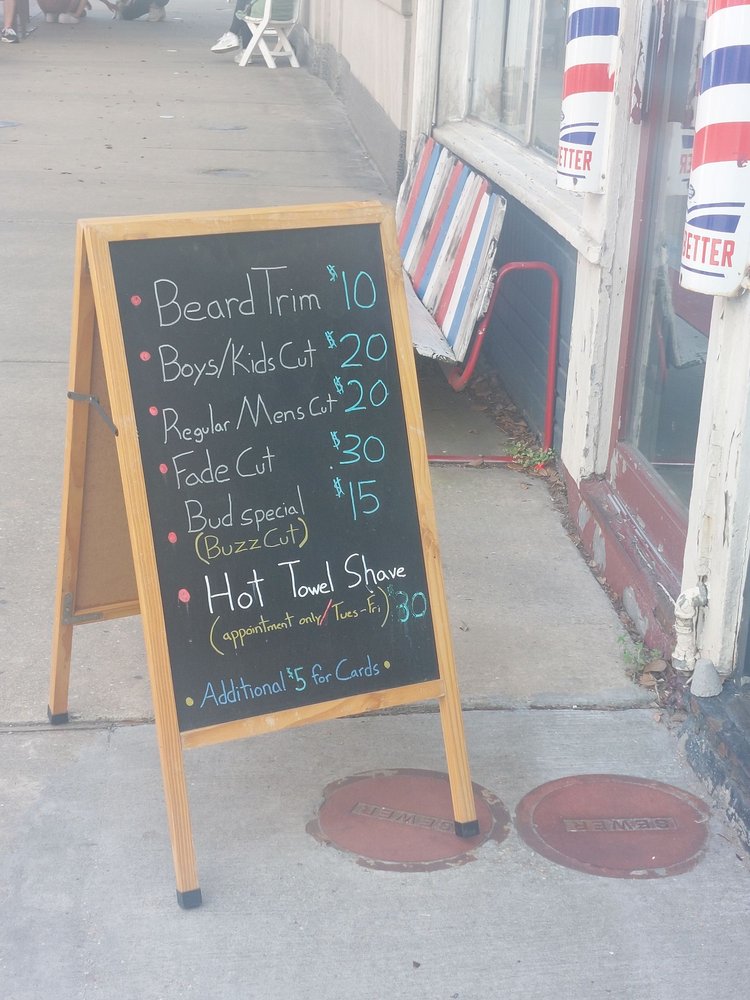 Beard Trim $10
Boys/Kids Cut $20
Regular Mens Cut $20
Fade Cut $30
Bud special $15
(Buzz Cut)
Hot Towel Shave
(appointment only/Tues-Fri) $30
Additional $5 for Cards
ETTER
BETTER
SEWER
SEWER